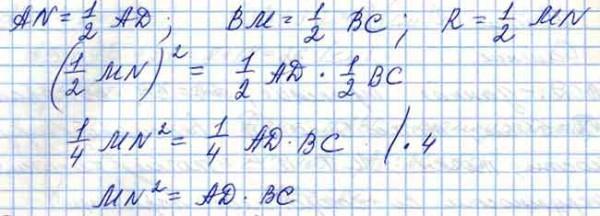 AN = 1/2 AD; BM = 1/2 BC; R = 1/2 MN
(1/2 MN)² = 1/2 AD · 1/2 BC
1/4 MN² = 1/4 AD · BC /· 4
MN² = AD · BC